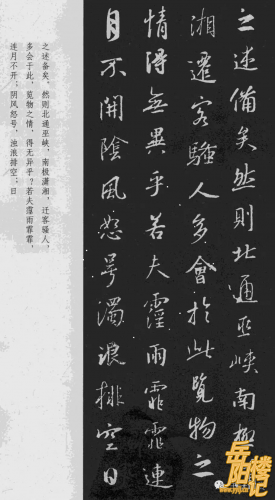 之述備矣然則北通巫峽南極
湘遷客騷人多會於此覽物之
情得無異乎若夫霪雨霏霏連
月不開陰風怒号濁浪排空日
之述备矣，然则北通巫峡，南极潇湘，迁客骚人，
多会于此，览物之情，得无异乎？若夫霪雨霏霏，
连月不开；阴风怒号，浊浪排空；日
岳阳楼